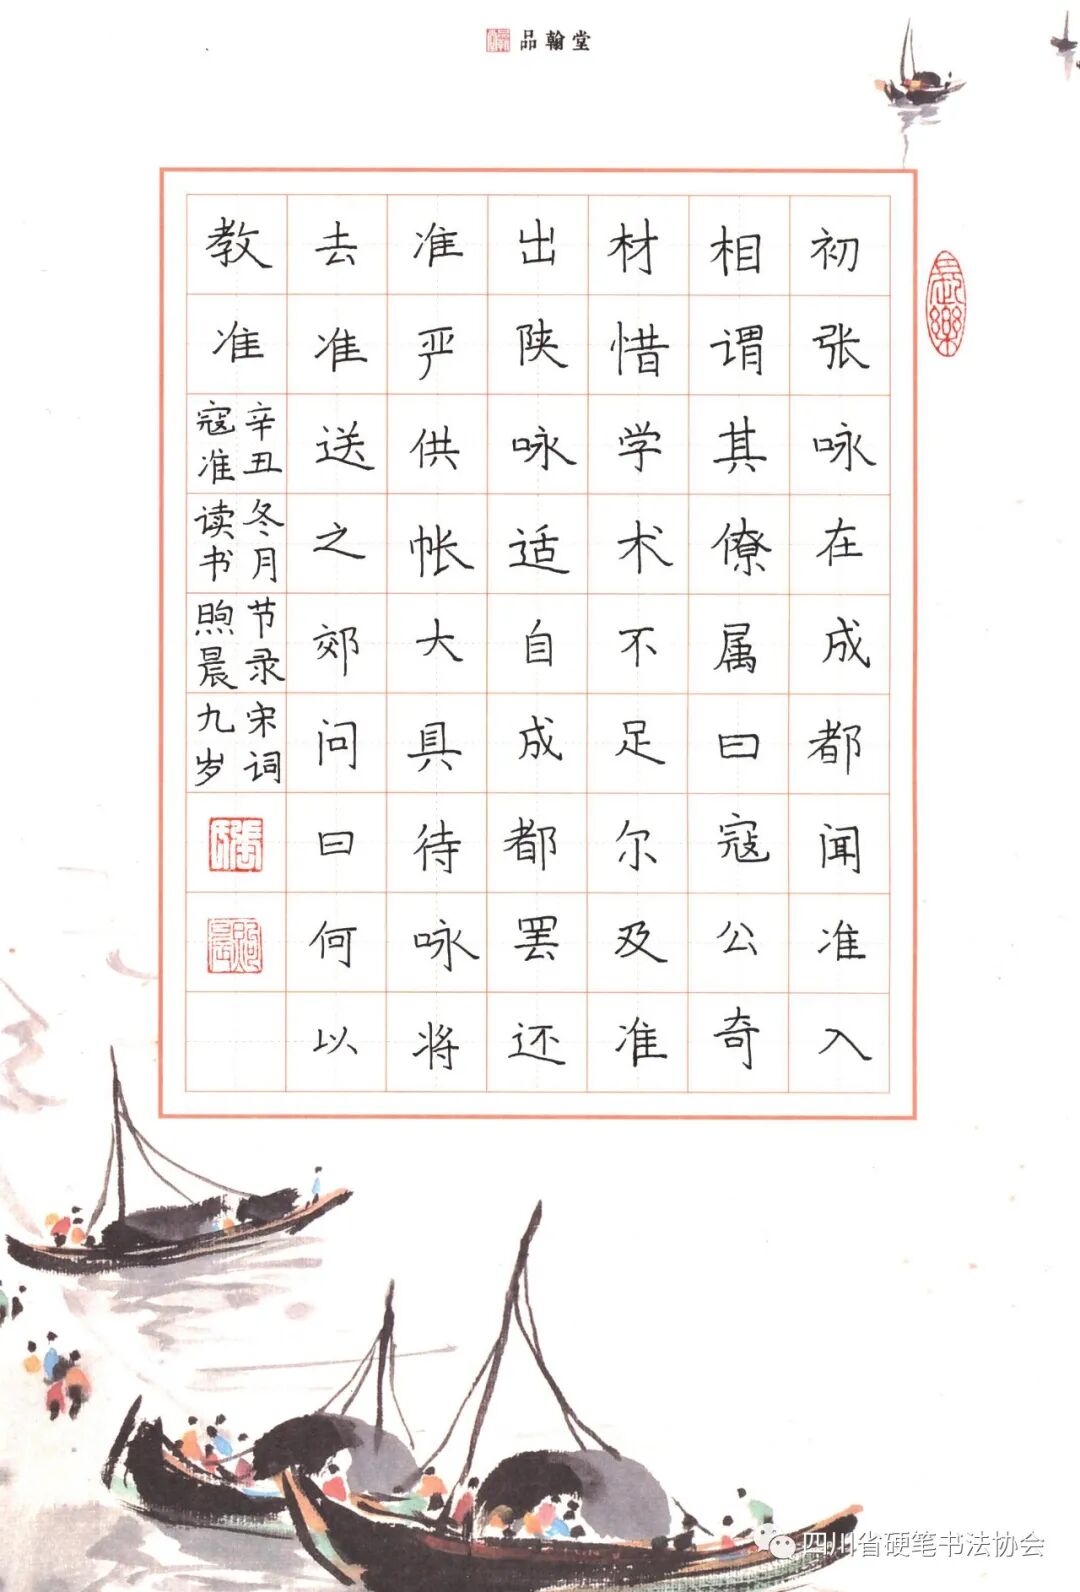 品翰堂
初张咏在成都闻准入
相谓其僚属曰寇公奇
材惜学术不足尔及准
出陕咏适自成都罢还
准严供帐大具待咏将
去准送之郊问曰何以
教准
辛丑冬月节录宋词
寇准读书煦晨九岁
四川省硬笔书法协会